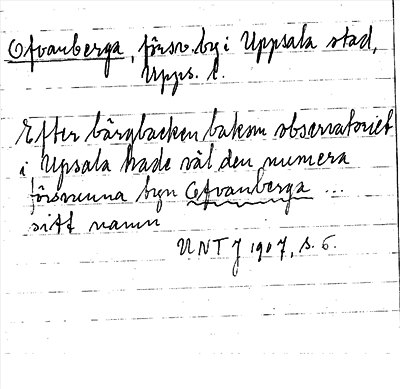 Ofvanberga, försv. by i Uppsala stad,
Upps. l.
Efter bärgbacken bakom observatoriet
i Upsala hade väl den numera
försvunna byn Ofvanberga ...
sitt namn
UNTJ 1907, s. 6.